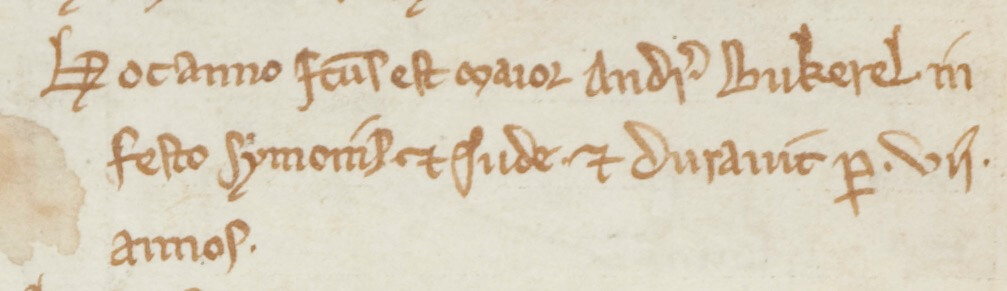 Hoc anno fc̄us est maior Andr̉ Bukerel in
festo Symonis ⁊ Jude ⁊ duravit ꝑ .vii.
annos.